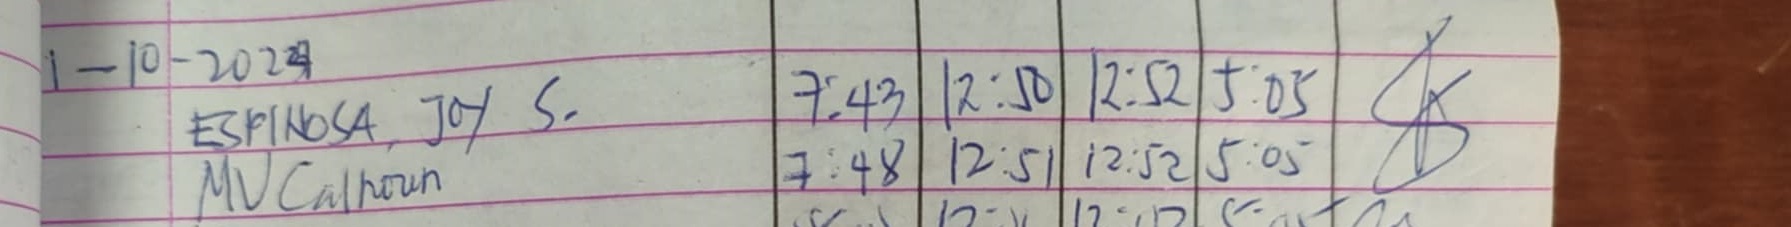 1-10-2024
ESPINOSA, JOY S. 7:43 12:50 12:52 5:05
MV Calhoun 7:48 12:51 12:52 5:05